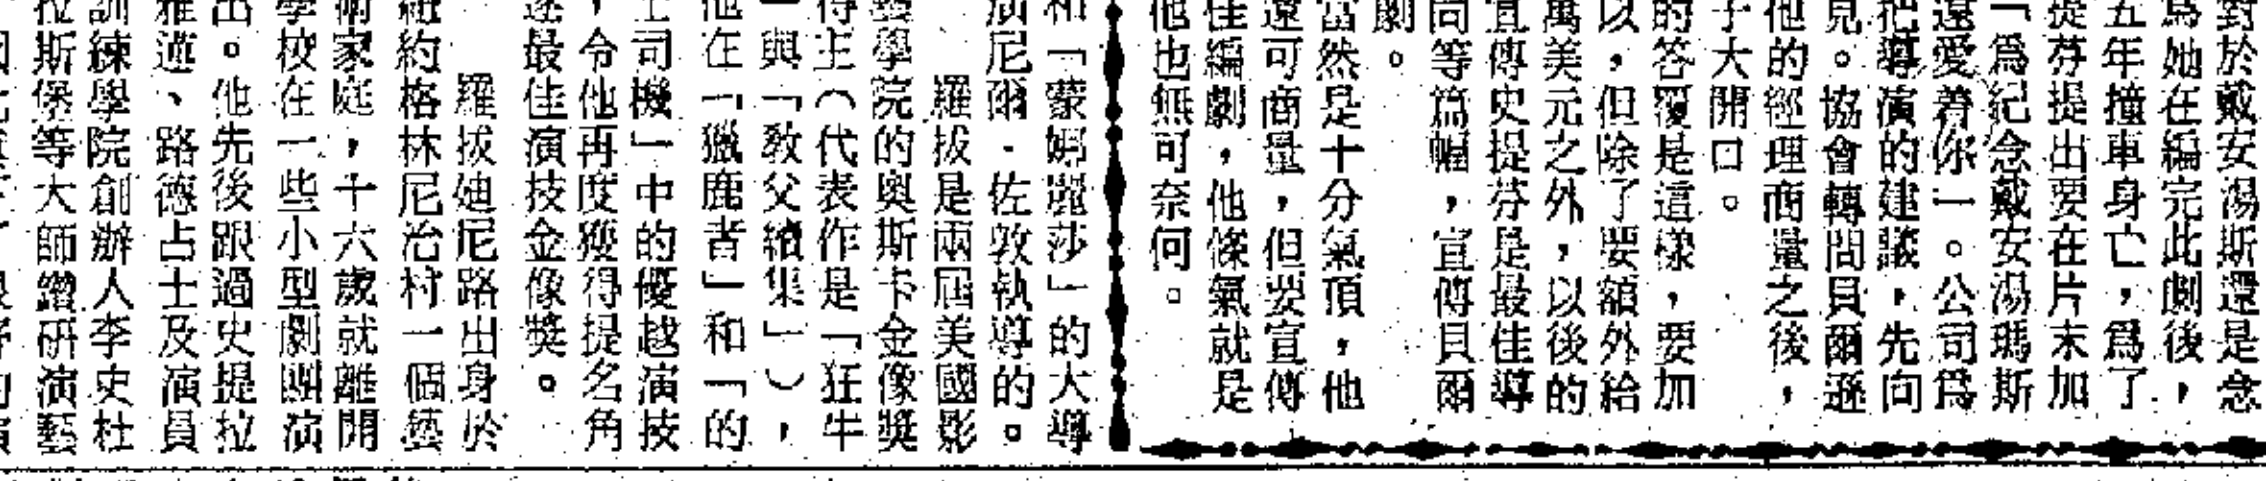 對於戴安湯斯還是念
爲她在編完此劇後，
五年撞車身亡，爲了
提芬提出要在片末加
「爲紀念戴安湯瑪斯
遠愛着你」。公司爲
把導演的建議，先向
見。協會轉問貝爾遜
他的經理商量之後，
子大開口。
的答覆是這樣，要加
以，但除了要額外給
萬美元之外，以後的
宣傳史提芬是最佳導
同等篇幅，宣傳貝爾
劇。
當然是十分氣頂，他
還可商量，但要宣傳
佳編劇，他條氣就是
他也無可奈何。
和「蒙娜麗莎」的大導
演尼爾．佐敦執導的。
羅拔是兩屆美國影
藝學院的奧斯卡金像獎
得主（代表作是「狂牛
」與「敎父續集」），
他在「獵鹿者」和「的
士司機」中的優越演技
，令他再度獲得提名角
逐最佳演技金像獎。
羅拔廸尼路出身於
紐約格林尼治村一個藝
術家庭，十六歲就離開
學校在一些小型劇團演
出。他先後跟過史提拉
雅達、路德占士及演員
訓練學院創辦人李史杜
拉斯堡等大師鑽研演藝